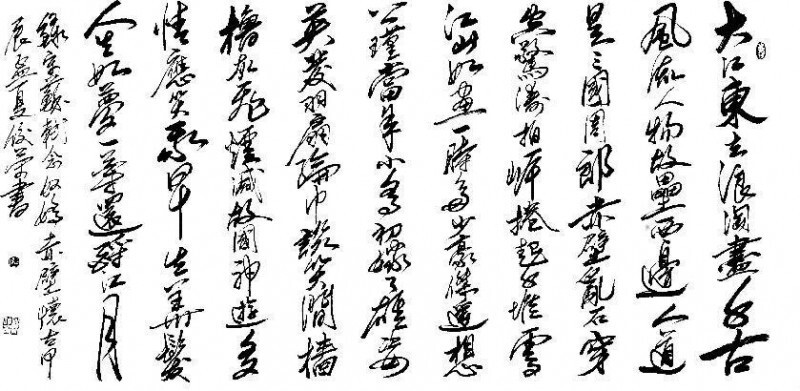 大江東去浪淘盡千古
風流人物故壘西邊人道
是三國周郎赤壁亂石穿
空驚濤拍岸捲起千堆雪
江山如畫一時多少豪傑遙想
公瑾當年小喬初嫁了雄姿
英發羽扇綸巾談笑間檣
櫓灰飛煙滅故國神遊多
情應笑我早生華髮
人生如夢一尊還酹江月
錄宋蘇軾念奴嬌赤壁懷古甲
辰孟夏俊榮書